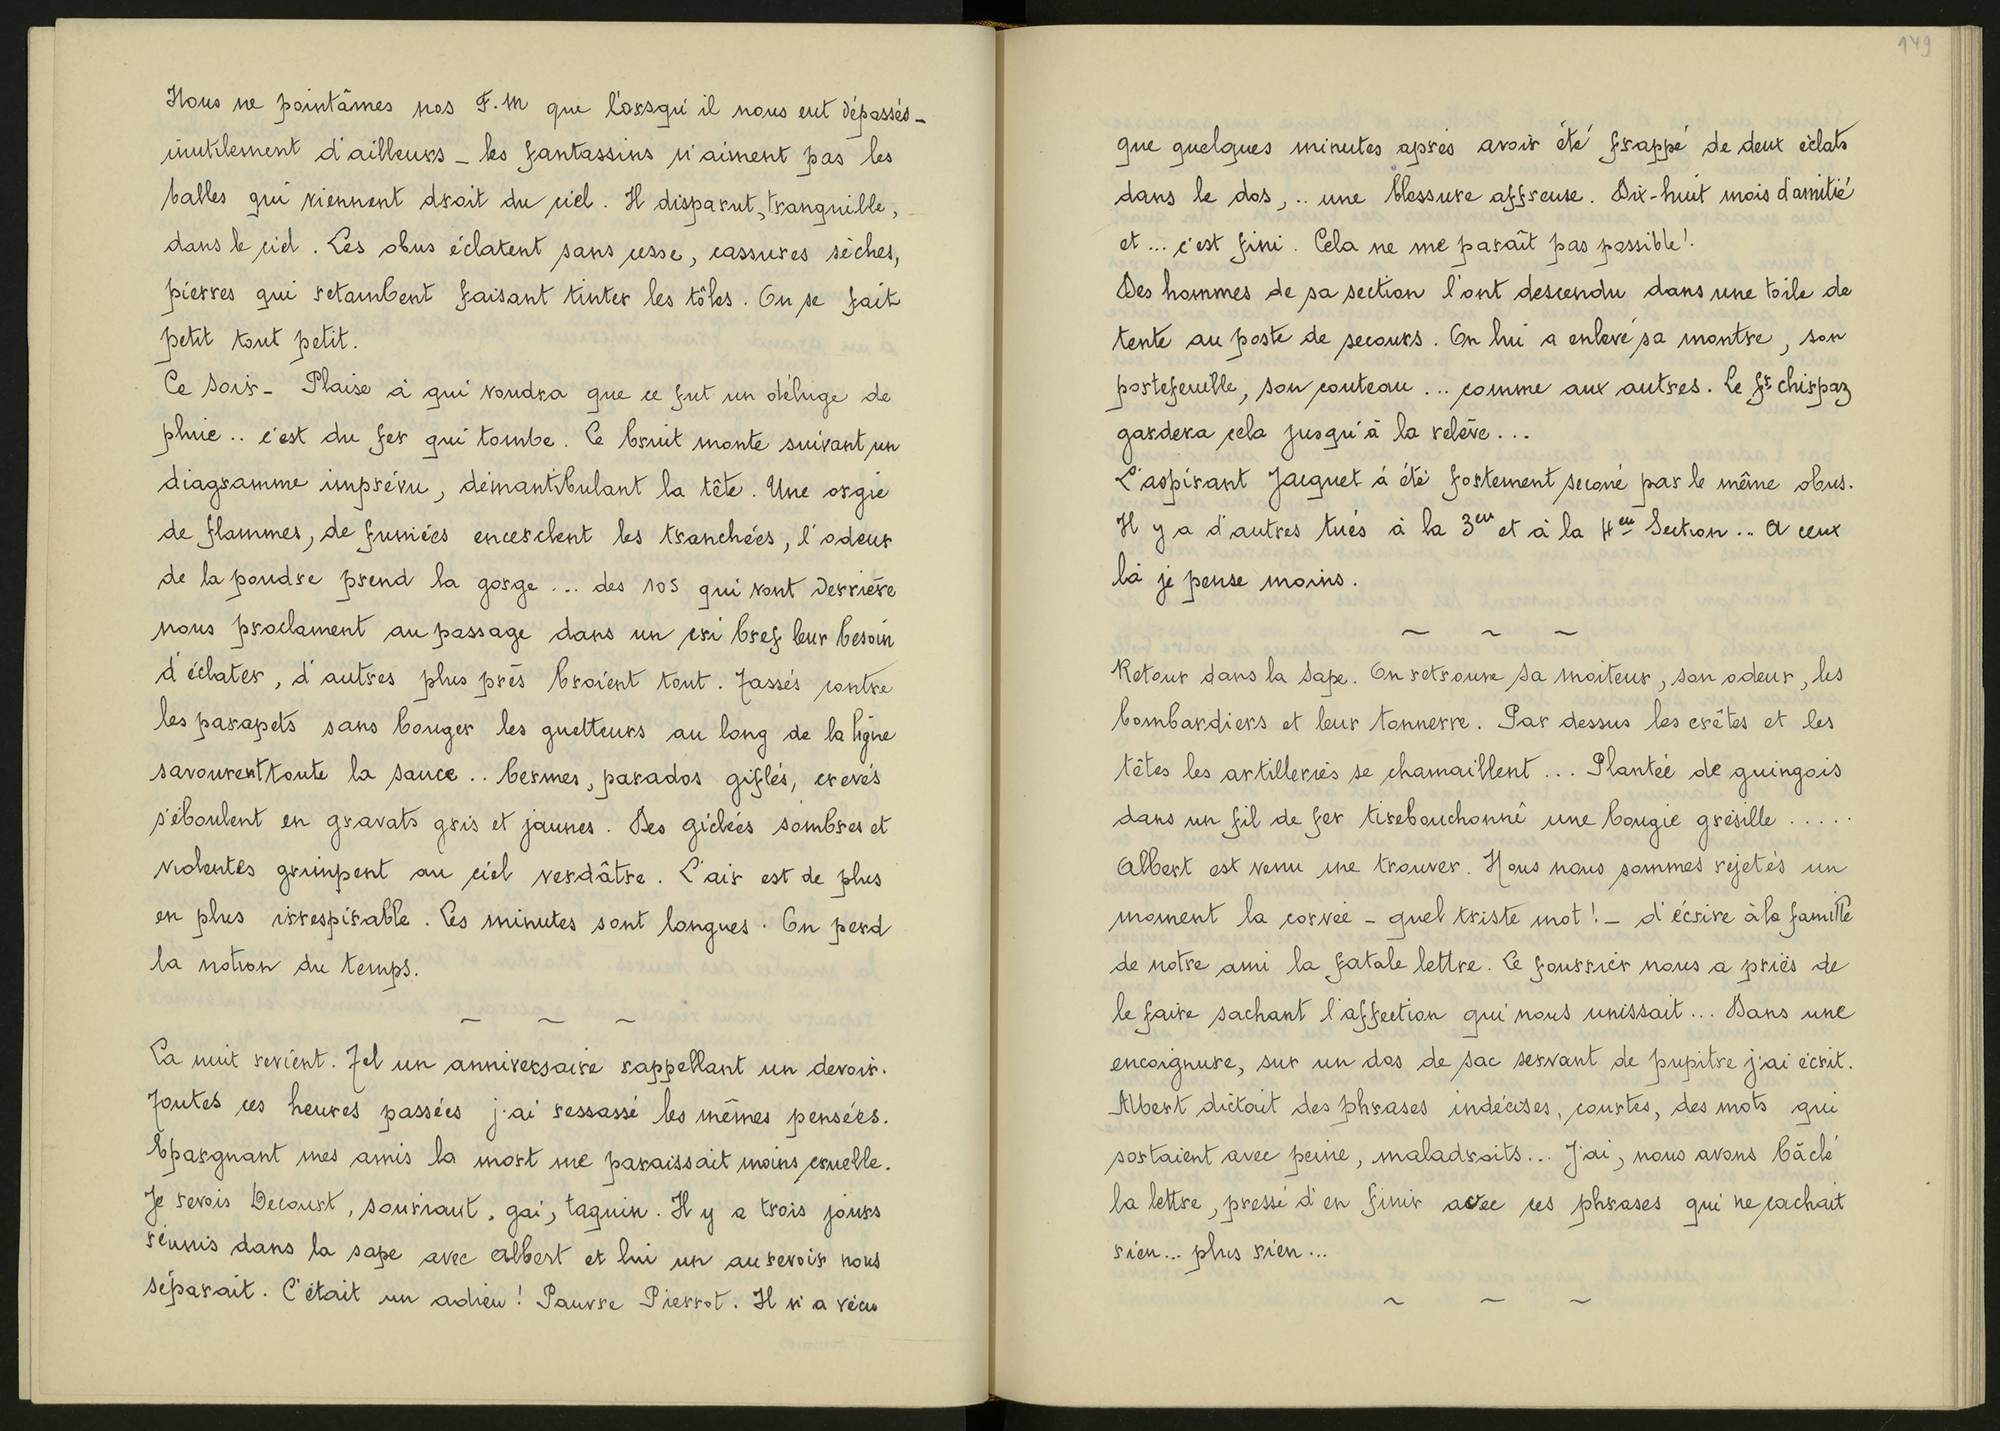 Nous ne pointâmes nos F.M que lorsqu'il nous eut dépassés_
inutilement d'ailleurs _ les fantassins n'aiment pas les
balles qui viennent droit du ciel. Il disparut, tranquille,
dans le ciel. Les obus éclatent sans cesse, cassures sèches,
pierres qui retombent faisant tinter les tôles. On se fait
petit tout petit.
Ce soir_ Plaise à qui voudra que ce fut un déluge de
pluie .. c'est du fer qui tombe. Le bruit monte suivant un
diagramme imprévu, démantibulant la tête. Une orgie
de flammes, de fumées encerclent les tranchées, l'odeur
de la poudre prend la gorge ... des 105 qui vont derrière
nous proclament au passage dans un cri bref leur besoin
d'éclater, d'autres plus près broient tout. Tassés contre
les parapets sans bouger les guetteurs au long de la ligne
savourent toute la sauce .. bermes, parados giflés, crevés
s'éboulent en gravats gris et jaunes. Des giclées sombres et
violentes grimpent au ciel verdâtre. L'air est de plus
en plus irrespirable. Les minutes sont longues. On perd
la notion du temps.
~ ~ ~
La nuit revient. Tel un anniversaire rappellant un devoir.
Toutes ces heures passées j'ai ressassé les mêmes pensées.
Epargnant mes amis la mort me paraissait moins cruelle.
Je revois Decourt, souriant, gai, taquin. Il y a trois jours
réunis dans la sape avec Albert et lui un au revoir nous
séparait. C'était un adieu! Pauvre Pierrot. Il n'a vécu
149
que quelques minutes après avoir été frappé de deux éclats
dans le dos, .. une blessure affreuse. Dix-huit mois d'amitié
et ... c'est fini. Cela ne me paraît pas possible!.
Des hommes de sa section l'ont descendu dans une toile de
tente au poste de secours. On lui a enlevé sa montre, son
portefeuille, son couteau ... comme aux autres. Le fr chirpaz
gardera cela jusqu'à la relève...
L'aspirant Jacquet à été fortement secoué par le même obus.
Il y a d'autres tués à la 3eu et à la 4eu Section... A ceux
là je pense moins.
~ ~ ~
Retour dans la sape. On retrouve sa moiteur, son odeur, les
bombardiers et leur tonnerre. Par dessus les crêtes et les
têtes les artilleries se chamaillent ... Plantée de guingois
dans un fil de fer tirebouchonné une bougie grésille .....
Albert est venu me trouver. Nous nous sommes rejetés un
moment la corvée _ quel triste mot! _ d'écrire à la famille
de notre ami la fatale lettre. Le fourrier nous a priés de
le faire sachant l'affection qui nous unissait... Dans une
encoignure, sur un dos de sac servant de pupitre j'ai écrit.
Albert dictait des phrases indécises, courtes, des mots qui
sortaient avec peine, maladroits... J'ai, nous avons bâclé
la lettre, pressé d'en finir avec ces phrases qui ne cachait
rien... plus rien...
~ ~ ~